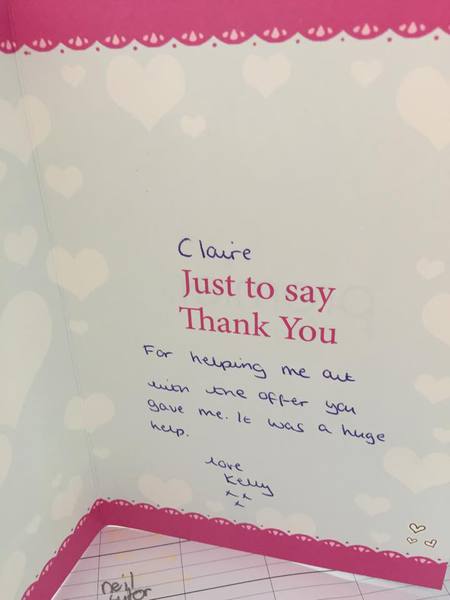 Claire
Just to say
Thank You
For helping me out
with the offer you
gave me. It was a huge
help.
love
Kelly
x x
x
neil